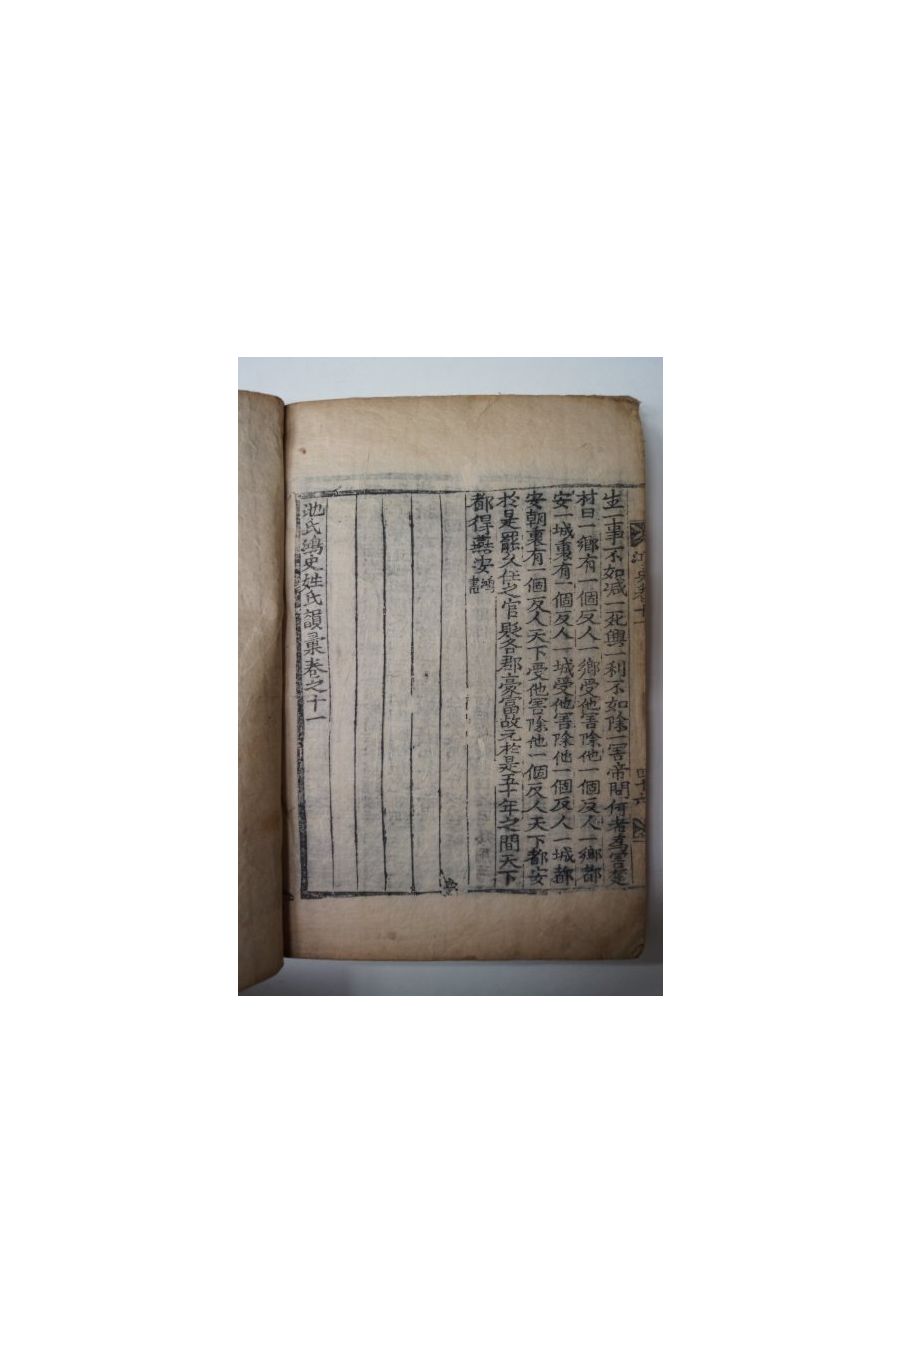 生一事不如減一死興一利不如除一害帝問何者為害楚
材曰一鄉有一個反人一鄉受他害除他一個反人一鄉都
安一城裏有一個反人一城受他害除他一個反人一城都
安朝裏有一個反人天下受他害除他一個反人天下都安
於是罷久任之官縣各郡豪富故元於是五十年之間天下
都得安 鴻書
池氏鴻史姓氏韻彙卷之十一
鴻史卷十一
四十六